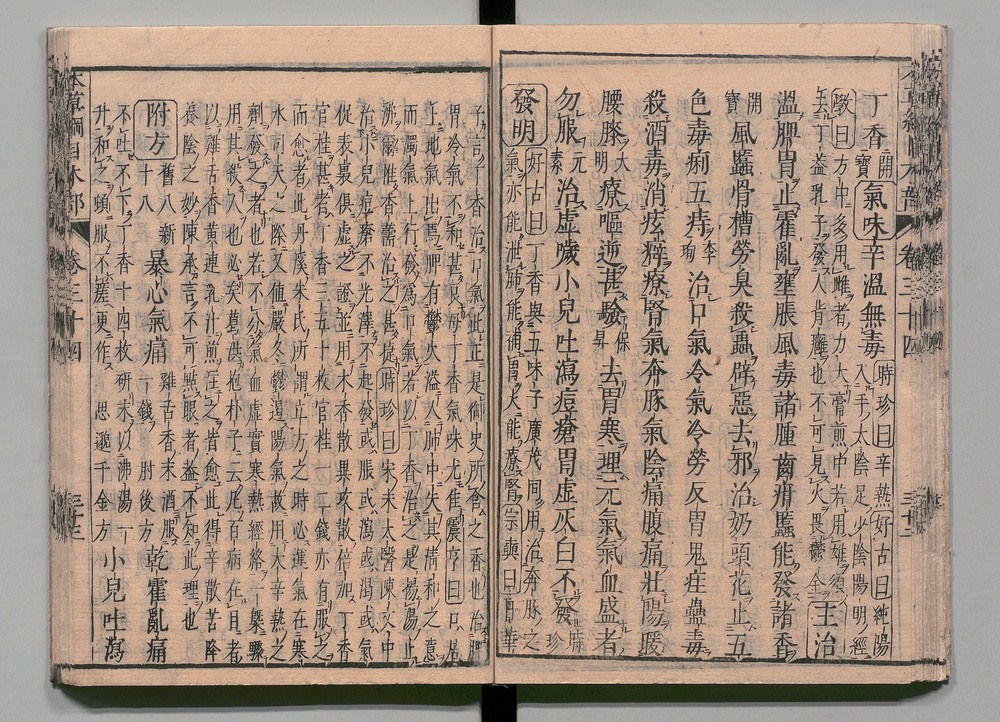 丁香開寶氣味辛溫無毒時珍曰辛熱好古曰純陽
入手太陰足少陰陽明經
斆曰方中多用雌者力大膏煎中若用雄須
去丁蓋乳子發人背癰也不可見火畏鬱金主治
溫脾胃止霍亂壅脹風毒諸腫齒疳䘌能發諸香
開寶風䘌骨槽勞臭殺蟲辟惡去邪治奶頭花止五
色毒痢五痔李珣治口氣冷氣冷勞反胃鬼疰蠱毒
殺酒毒消痃癖療腎氣奔豚氣陰痛腹痛壯陽暖
腰膝大明療嘔逆甚驗保昇去胃寒理元氣氣血盛者
勿服元素治虛噦小兒吐瀉痘瘡胃虛灰白不發時珍
發明好古曰丁香與五味子廣茂同用治奔豚之
氣亦能泄肺能補胃大能療腎宗奭曰日華
子言丁香治口氣此正是御史所含之香也治脾
胃冷氣不和甚良母丁香氣味尤佳震亨曰口居
上地氣出焉脾有鬱火溢入肺中失其清和之意
而濁氣上行發為口氣若以丁香治之是揚湯止
沸爾惟香薷治之甚捷時珍曰宋末太醫陳文中
治小兒痘瘡不光澤不起發或脹或瀉或渴或氣
促表裏俱虛之證並用木香散異攻散倍加丁香
官桂甚者丁香三五十枚官桂一二錢亦有服之
而愈者此丹溪朱氏所謂立方之時必運氣在寒
水司天之際又值嚴冬鬱遏陽氣故用大辛熱之
劑發之者也若不分氣血虛實寒熱經絡一槩驟
用其殺人也必矣葛洪抱朴子云凡百病在目者
以雞舌香黃連乳汁煎注之皆愈此得辛散苦降
養陰之妙陳承言不可點眼者蓋不知此理也
附方舊八新十八暴心氣痛雞舌香末酒服一錢肘後方乾霍亂痛
不吐不下丁香十四枚研末以沸湯一
升和之頓服不瘥更作思邈千金方小兒吐瀉
本草綱目木部 卷三十四